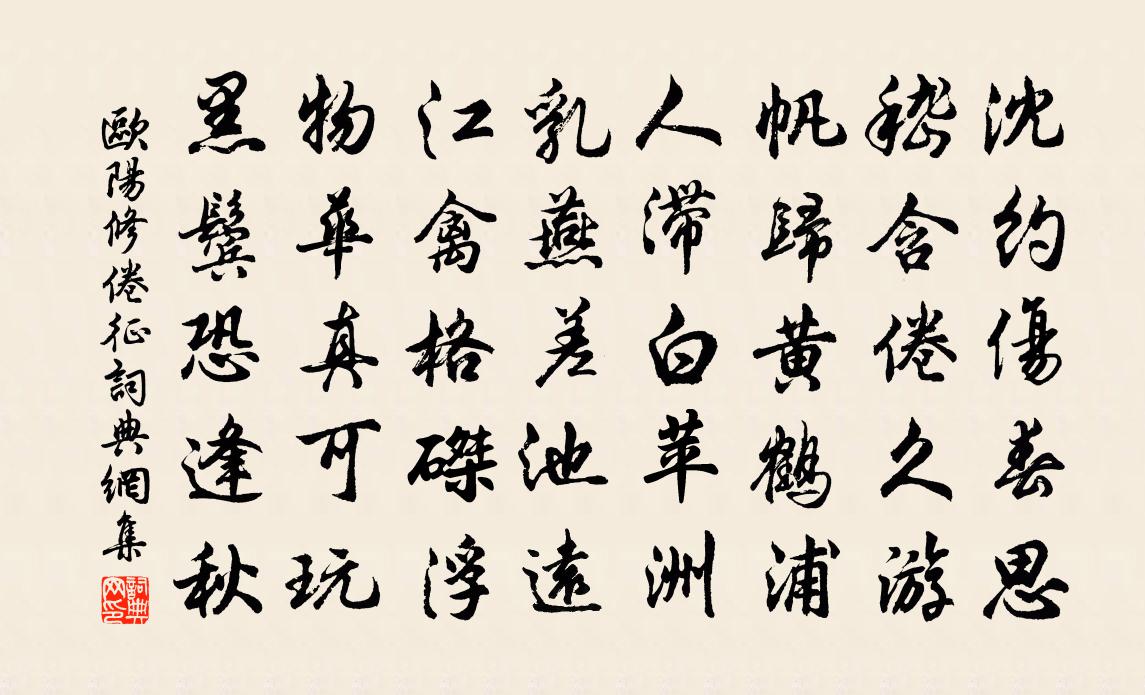 沈約傷春思
嵇含倦久游
帆歸黃鶴浦
人滯白苹洲
乳燕差池遠
江禽格磔浮
物華真可玩
黑鬢恐逢秋
歐陽修倦征詞典網集
詞典網印